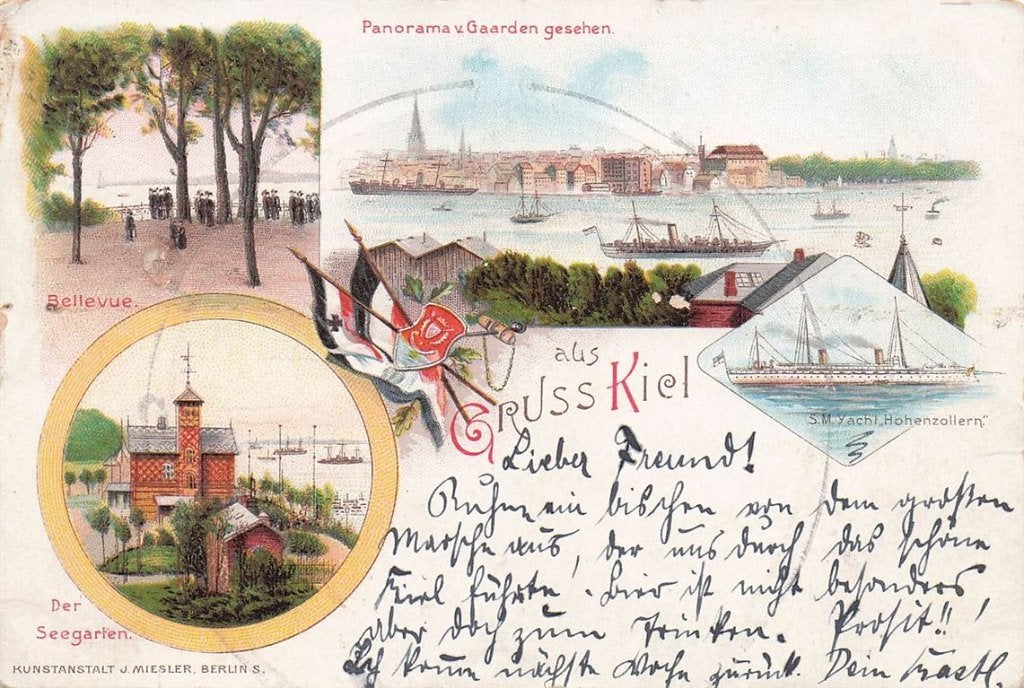 Panorama v. Gaarden gesehen.
Bellevue.
Gruss aus Kiel
S.M. Yacht „Hohenzollern."
Lieber Freund!
Ruhne ein bischen von dem großen
Marsche aus, der uns durch das schöne
Kiel führte. Bier ist nicht besonders,
aber doch zum Trinken. Prosit!!
Ich komme nächste Woche zurück. Dein
Der
Seegarten.
KUNSTANSTALT J. MIESLER, BERLIN S.